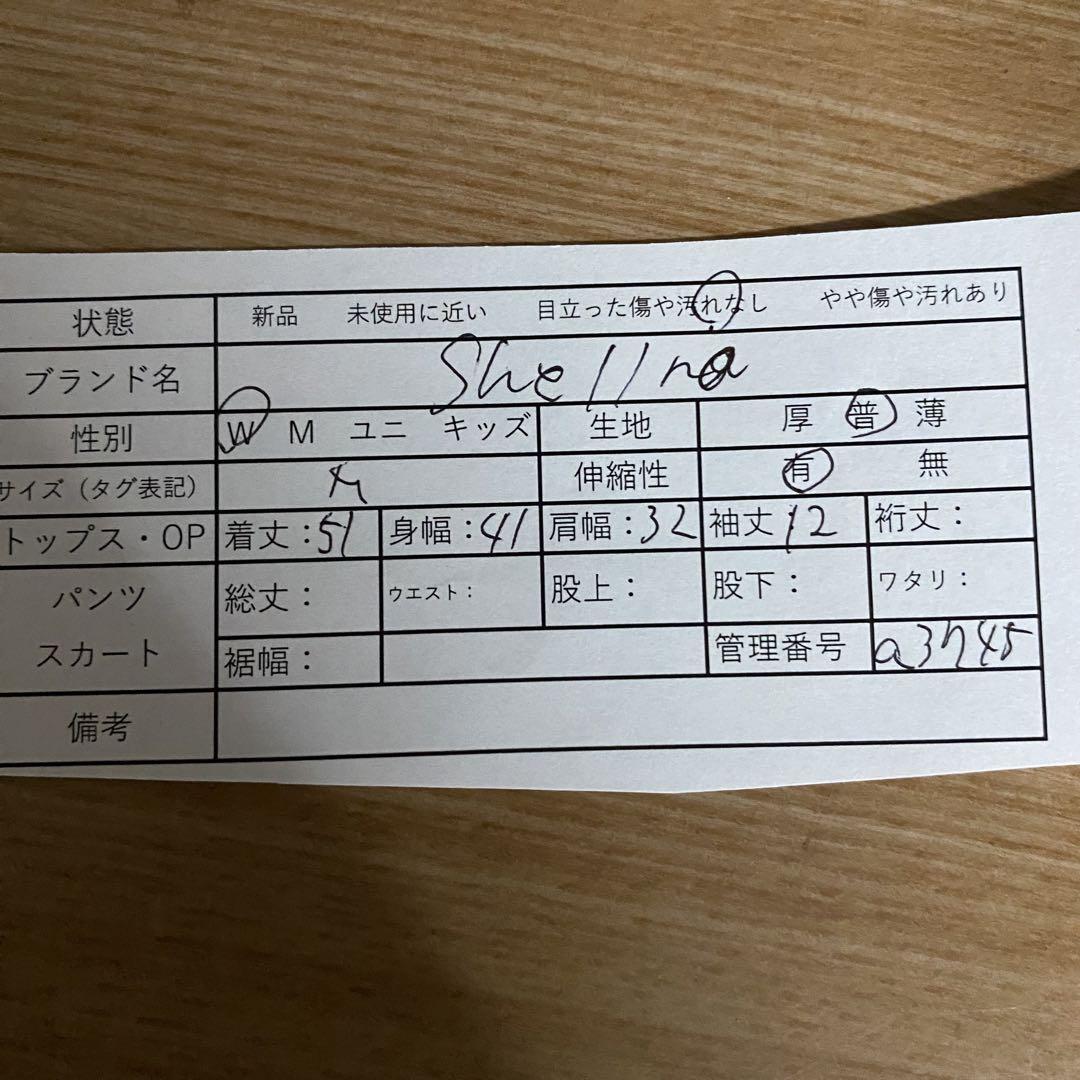 状態 新品 未使用に近い 目立った傷や汚れなし やや傷や汚れあり
ブランド名 Shellna
性別 W M ユニ キッズ 生地 厚 普 薄
サイズ（タグ表記） 伸縮性 有 無
トップス・OP 着丈：51 身幅：41 肩幅：32 袖丈12 裄丈：
パンツ 総丈： ウエスト： 股上： 股下： ワタリ：
スカート 裾幅： 管理番号 a3745
備考